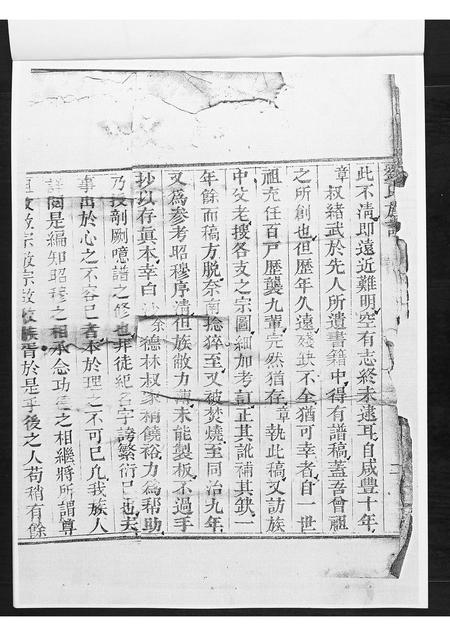 此不清即遠近難明空有志終未遠耳自咸豐十年
章叔緒武於先人所遺書籍中得有譜稿蓋吾曾祖
之所創也但歷年久遠殘缺不全猶可幸者自一世
祖充任百戶歷襲九輩完然猶存章執此稿又訪族
中父老搜各支之宗圖細加考訂正其訛補其缺一
年餘而稿方脫奈南捻猝至又被焚燒至同治九年
又為參考昭穆序清但族敝力薄未能製板不過手
抄以存真本幸白沙徐德林叔家稍饒裕力為幫助
乃授剞劂噫譜之修也非徒紀名字誇繁衍已也夫
事出於心之不容已者本於理之不可已凡我族人
詳閱是編知昭穆之相承念功之相繼將所謂尊
祖敬宗敬宗收族胥於是乎後之人苟稍有餘